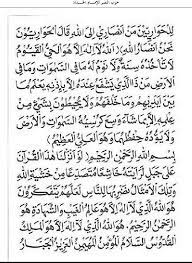 حزب النصر للإمام الحداد
لِلْحَوَارِيِّينَ مَنْ أَنْصَارِي إِلَى اللهِ قَالَ الْحَوَارِيُّونَ
نَحْنُ أَنْصَارُ اللهِ، اللهُ لَا إِلَهَ إِلَّا هُوَ الْحَيُّ الْقَيُّومُ
لَا تَأْخُذُهُ سِنَةٌ وَلَا نَوْمٌ لَهُ مَا فِي السَّمَوَاتِ وَمَا فِي
الْأَرْضِ مَنْ ذَا الَّذِي يَشْفَعُ عِنْدَهُ إِلَّا بِإِذْنِهِ يَعْلَمُ مَا
بَيْنَ أَيْدِيهِمْ وَمَا خَلْفَهُمْ وَلَا يُحِيطُونَ بِشَيْءٍ مِنْ
عِلْمِهِ إِلَّا بِمَا شَاءَ وَسِعَ كُرْسِيُّهُ السَّمَوَاتِ وَالْأَرْضَ
وَلَا يَؤُودُهُ حِفْظُهُمَا وَهُوَ الْعَلِيُّ الْعَظِيمُ
بِسْمِ اللهِ الرَّحْمَنِ الرَّحِيمِ، لَوْ أَنْزَلْنَا هَذَا الْقُرْآنَ
عَلَى جَبَلٍ لَرَأَيْتَهُ خَاشِعًا مُتَصَدِّعًا مِنْ خَشْيَةِ اللهِ
وَتِلْكَ الْأَمْثَالُ نَضْرِبُهَا لِلنَّاسِ لَعَلَّهُمْ يَتَفَكَّرُونَ
هُوَ اللهُ الَّذِي لَا إِلَهَ إِلَّا هُوَ عَالِمُ الْغَيْبِ وَالشَّهَادَةِ هُوَ
الرَّحْمَنُ الرَّحِيمُ هُوَ اللهُ الَّذِي لَا إِلَهَ إِلَّا هُوَ الْمَلِكُ
الْقُدُّوسُ السَّلَامُ الْمُؤْمِنُ الْمُهَيْمِنُ الْعَزِيزُ الْجَبَّارُ